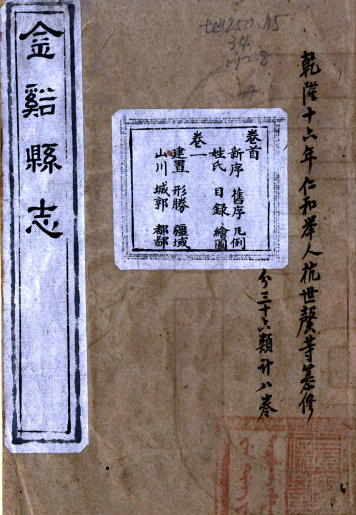 乾隆十六年仁和舉人杭世馨等纂修
分三十六類計八卷
卷首
新序 舊序 凡例
姓氏 目錄 繪圖
卷一
建置 形勝 疆域
山川 城郭 都鄙
金谿縣志